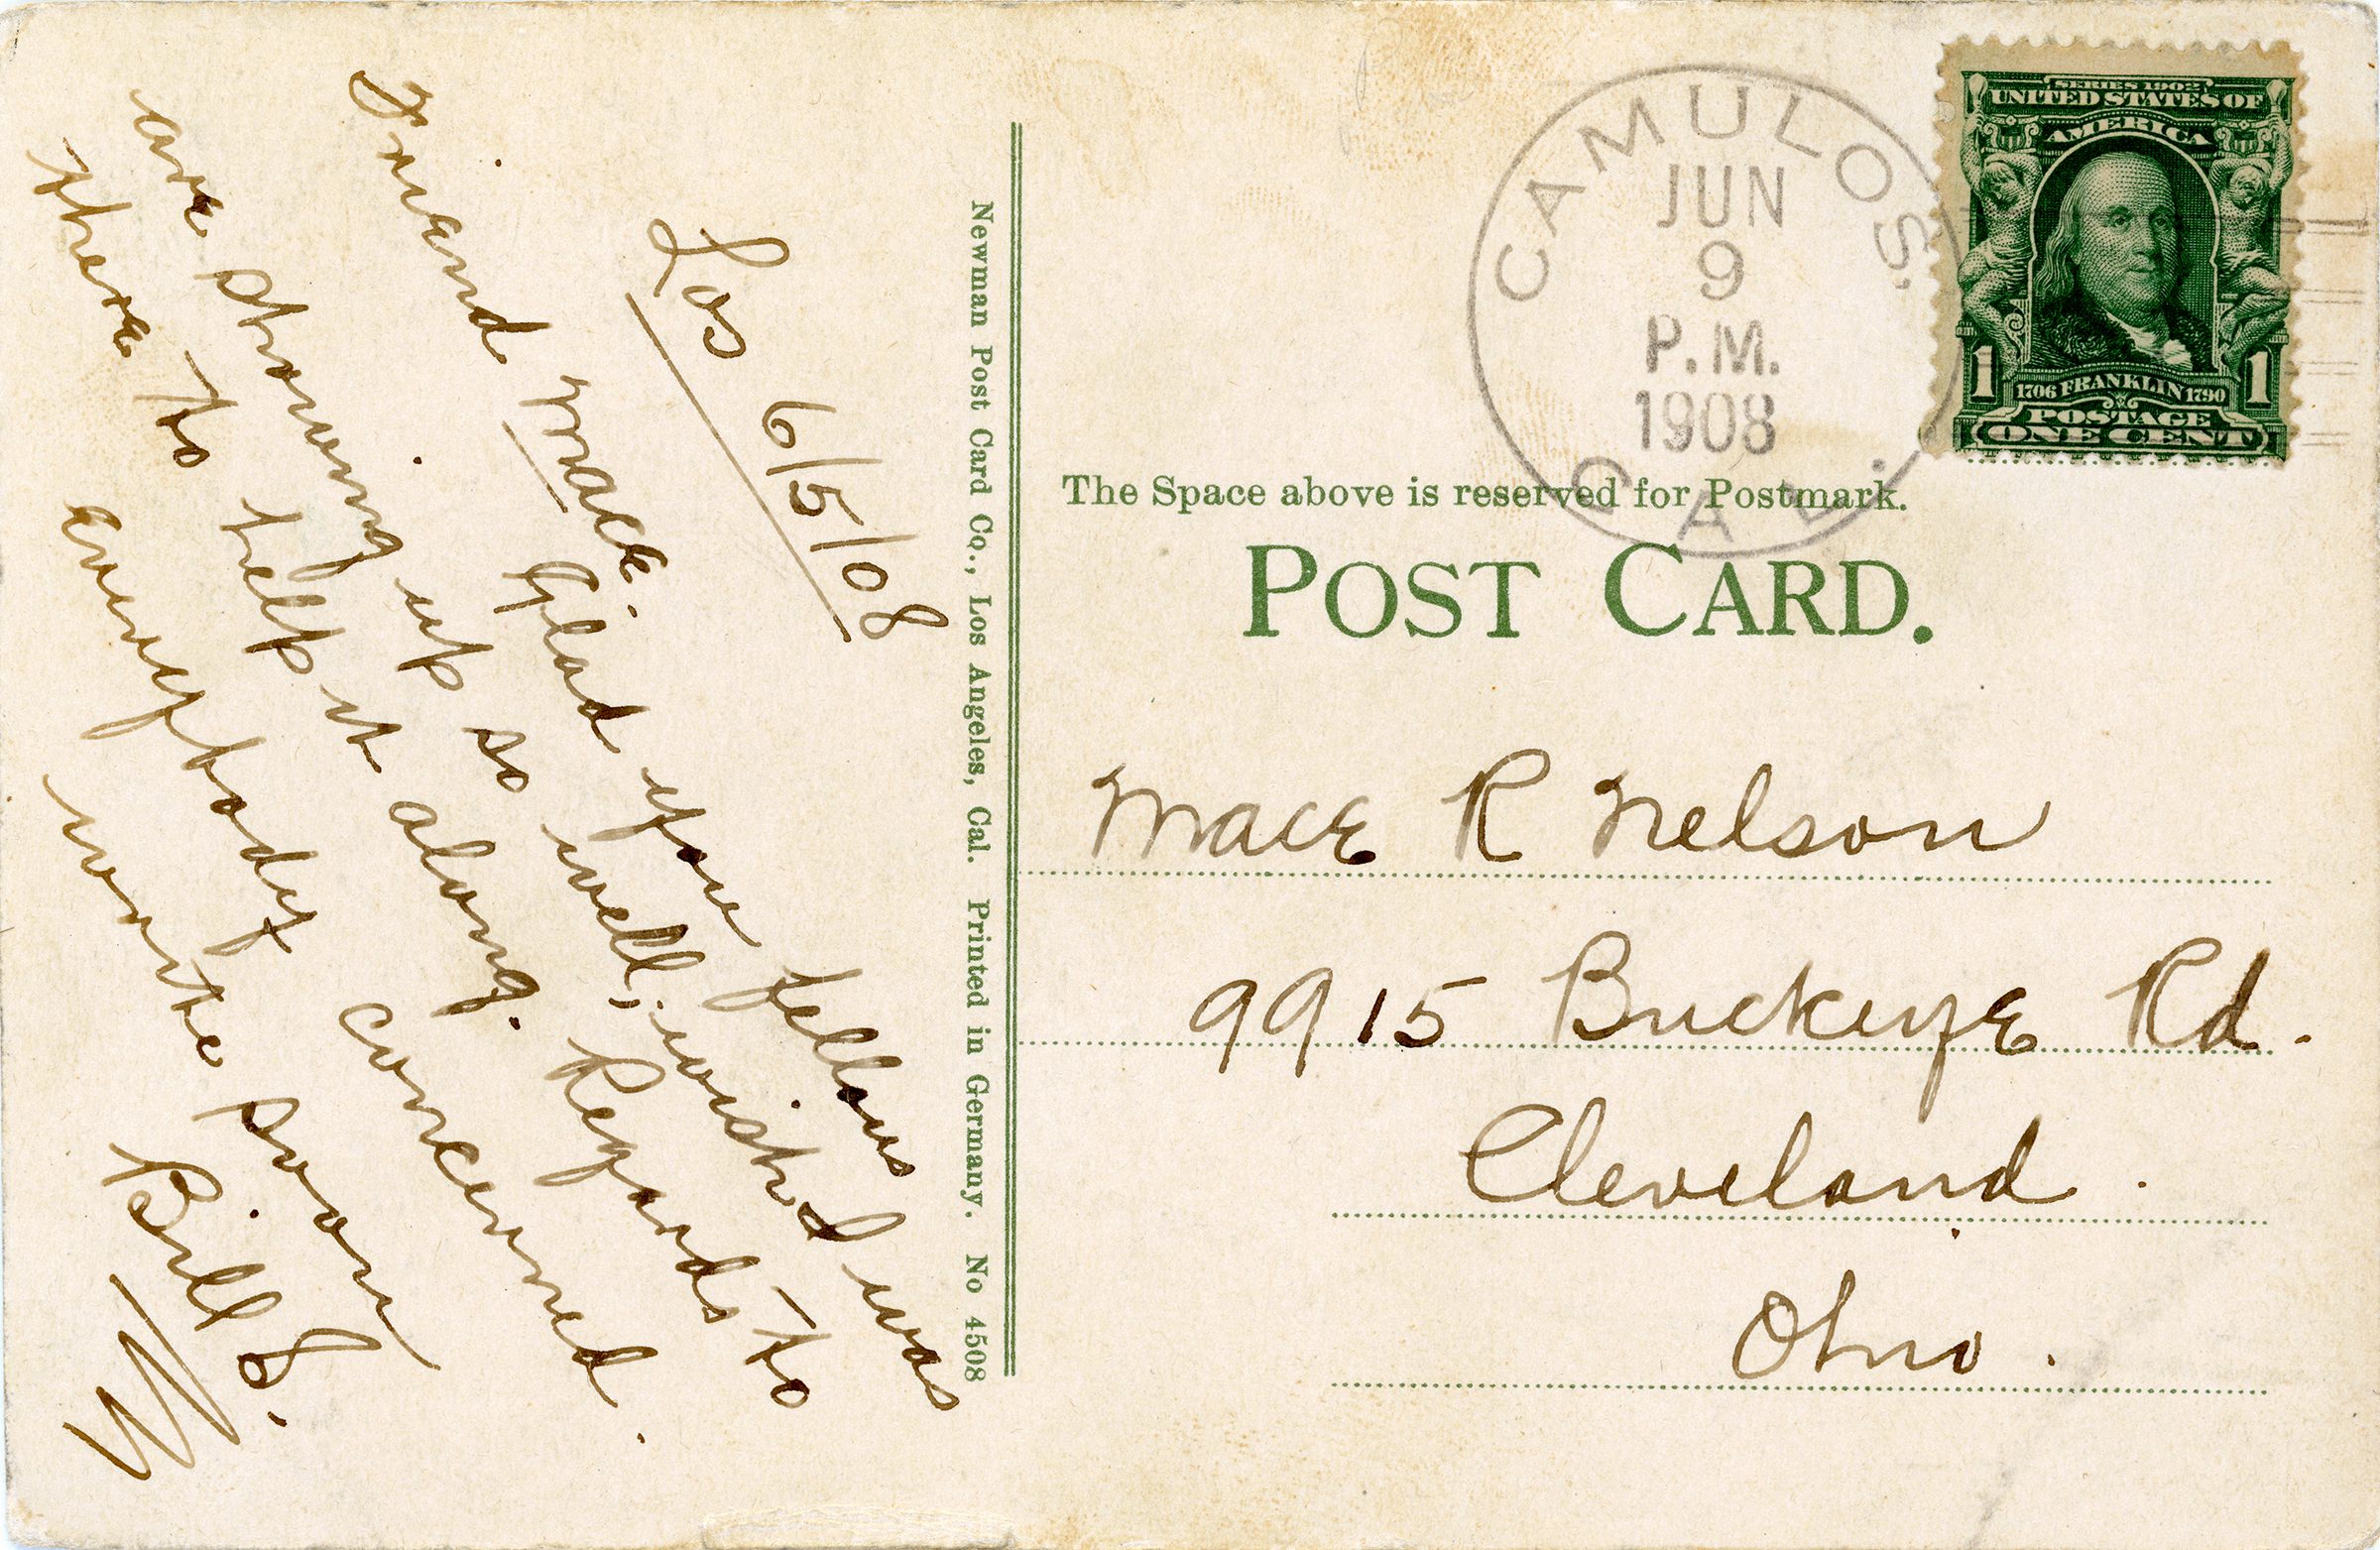 Los 6/5/08
Friend Mace. Glad you fellows
are showing up so well, wish I was
there to help it along. Regards to
everybody concerned.
write soon
Bill S.
Newman Post Card Co., Los Angeles, Cal. Printed in Germany. No 4508
CAMULOS.
JUN
9
P.M.
1908
CAL.
SERIES 1902
UNITED STATES OF
AMERICA
1 1706 FRANKLIN 1790 1
POSTAGE
ONE CENT
The Space above is reserved for Postmark.
POST CARD.
Mace R Nelson
9915 Buckeye Rd.
Cleveland.
Ohio.